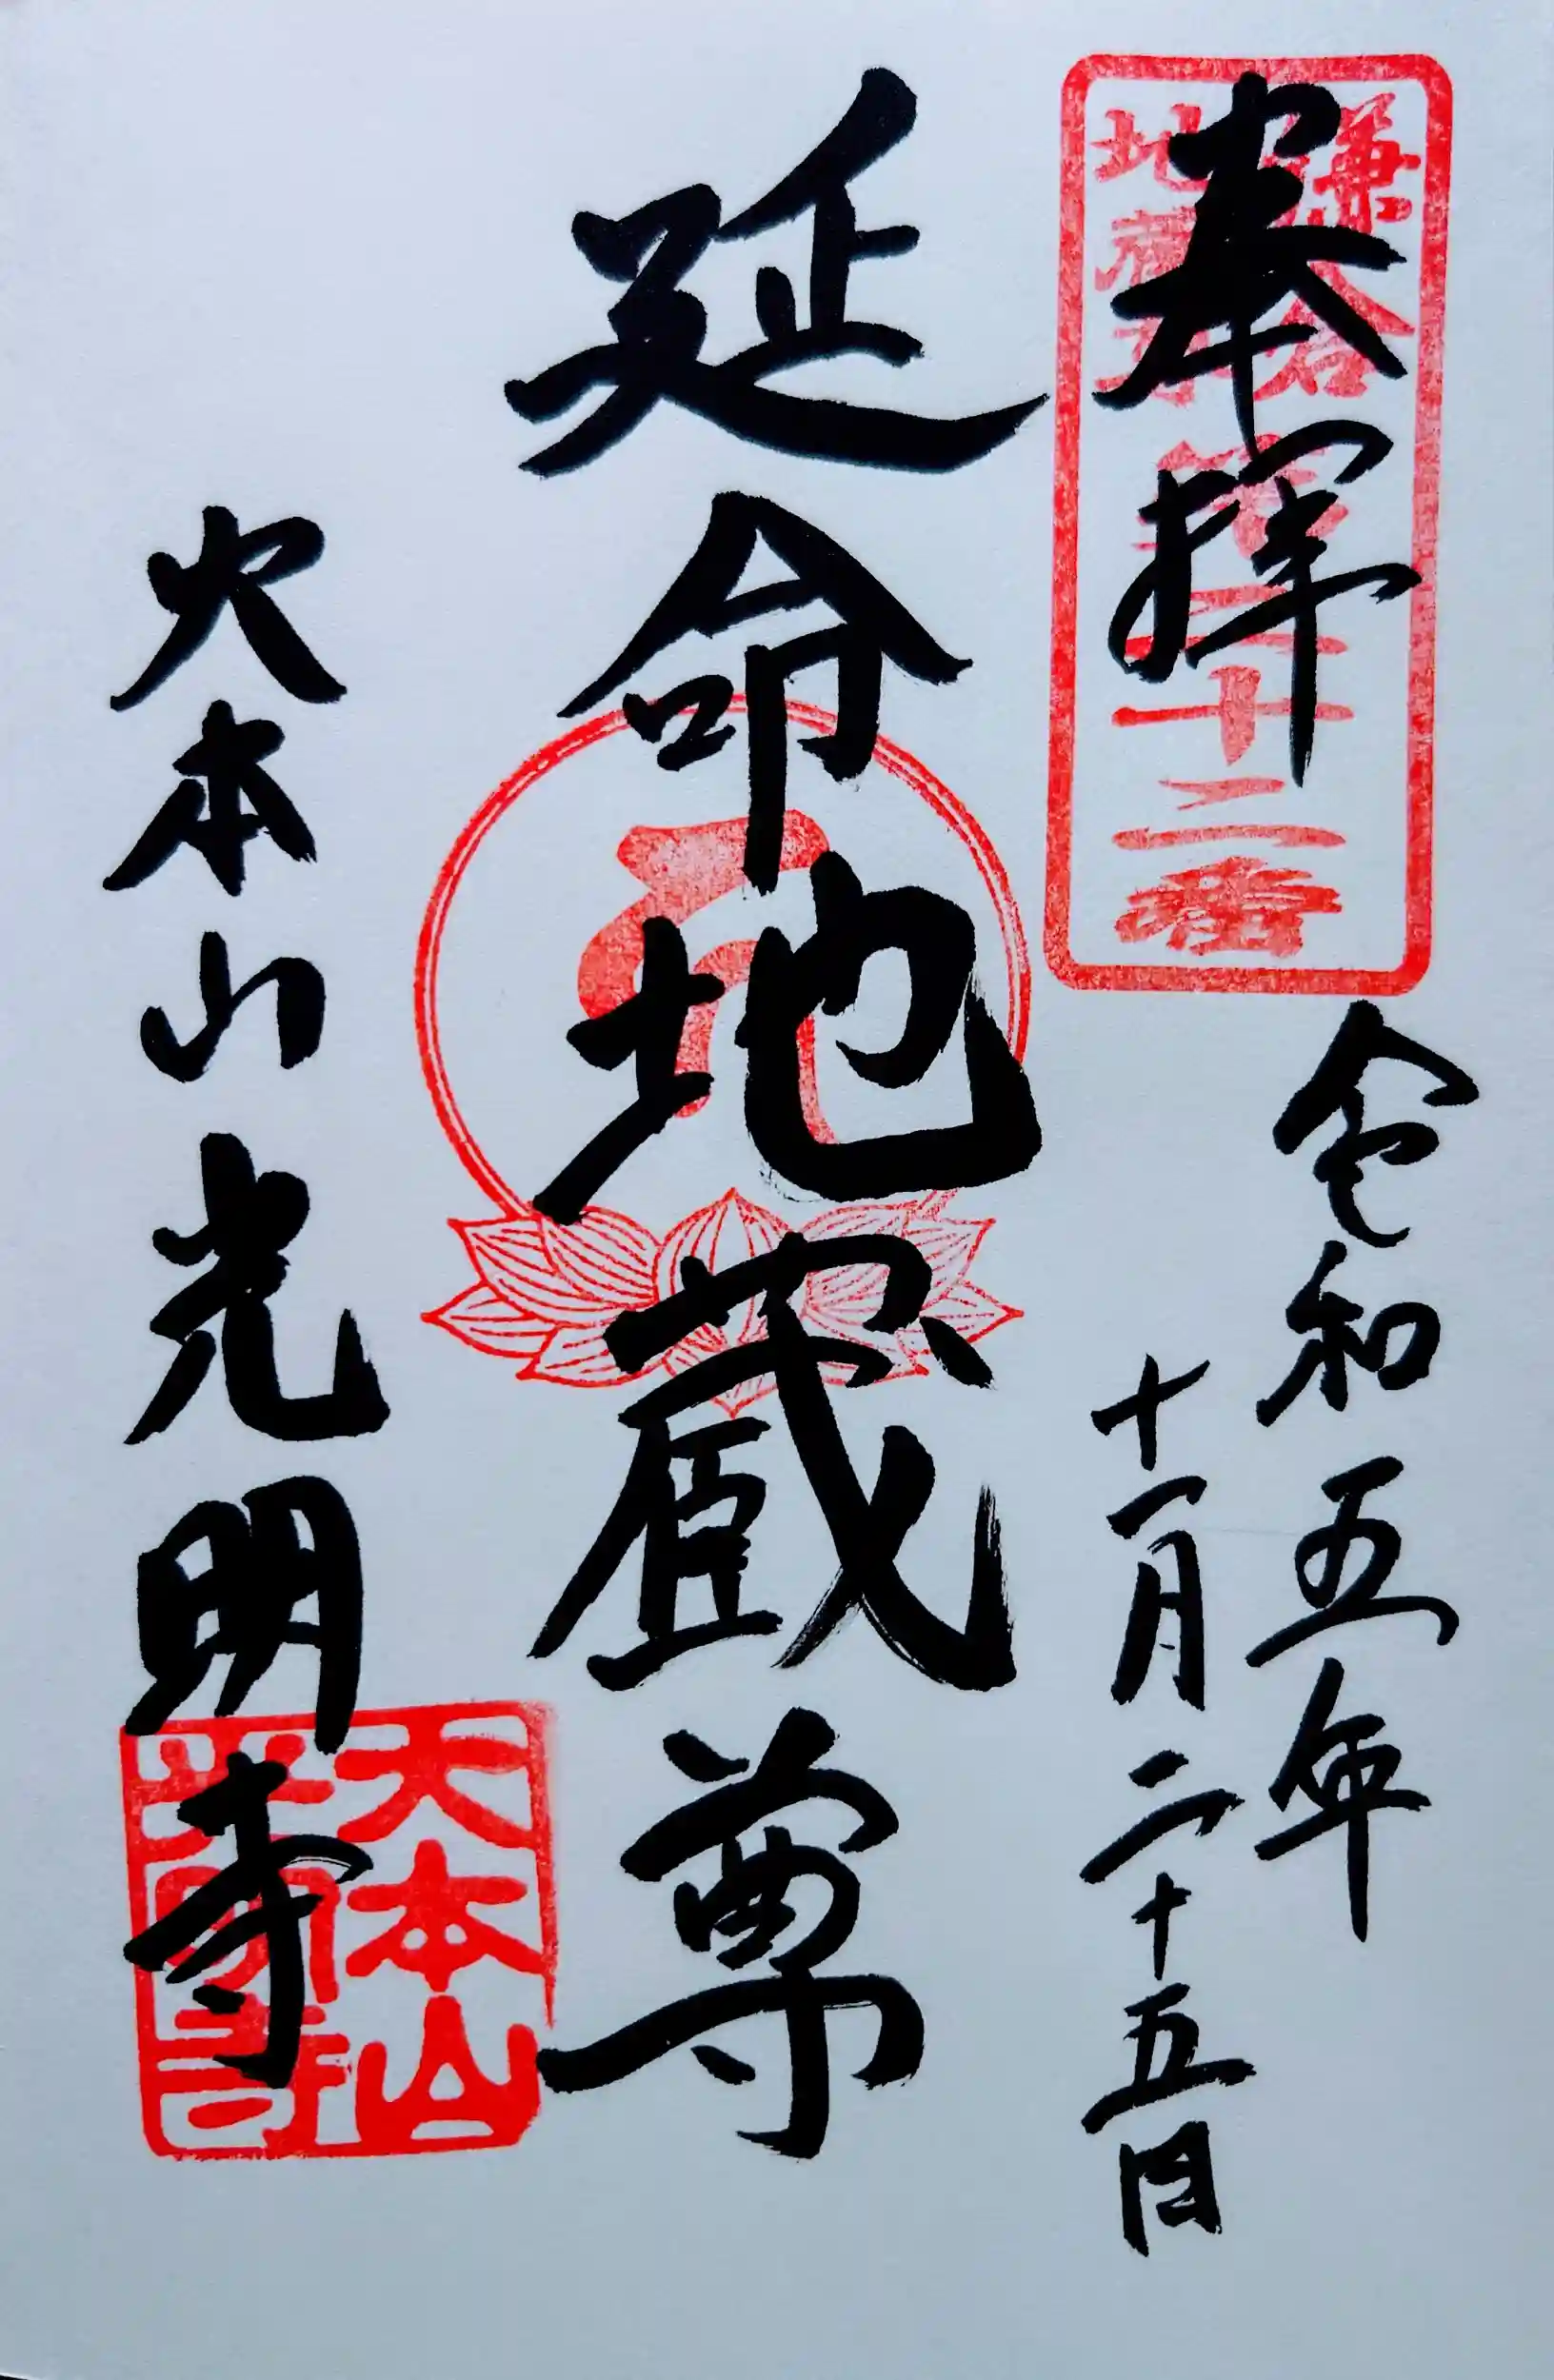 奉拝
鎌倉
地蔵尊
第二十二番
令和五年
十一月二十五日
延命地蔵尊
大本山光明寺
大本山
光明寺